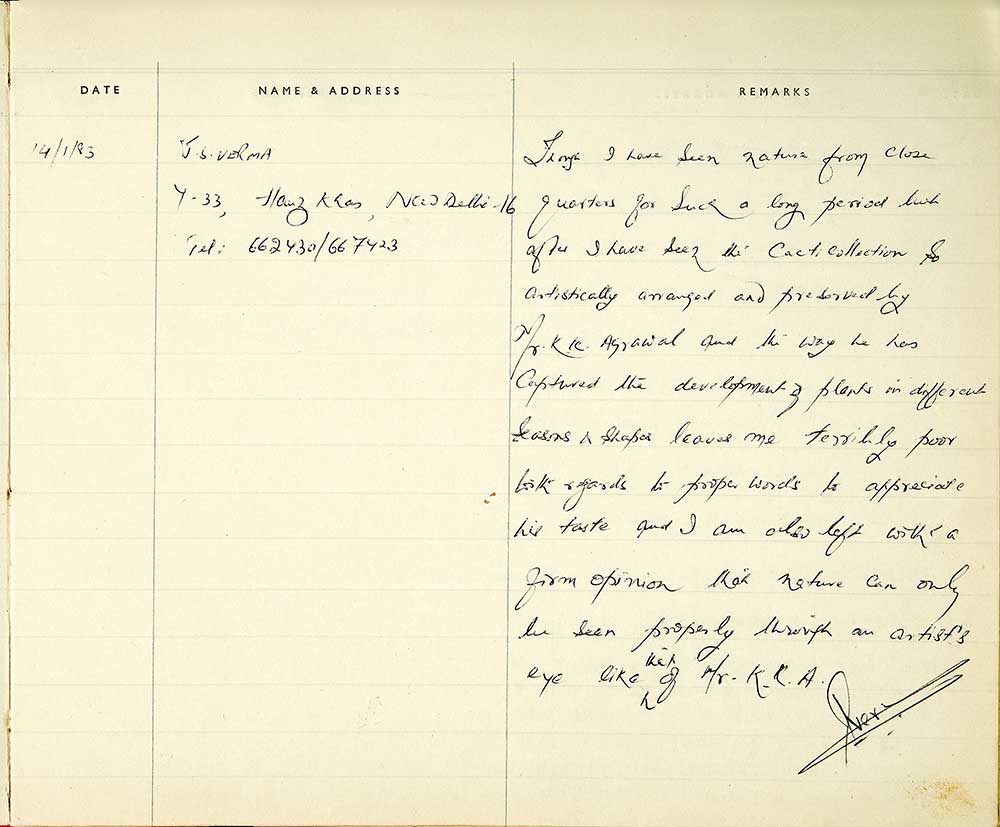 DATE NAME & ADDRESS REMARKS
14/1/83
J.S. VERMA
Y-33, Hauz Khas, New Delhi-16
Tel: 662430/667423
Though I have seen nature from close
quarters for such a long period but
after I have seen the Cacti collection so
artistically arranged and preserved by
Mr. K.K. Agrawal and the way he has
Captured the development of plants in different
seasons & shapes leaves me terribly poor
with regards to proper words to appreciate
his taste and I am also left with a
firm opinion that nature can only
be seen properly through an artist's
eye like that of Mr. K.K.A.